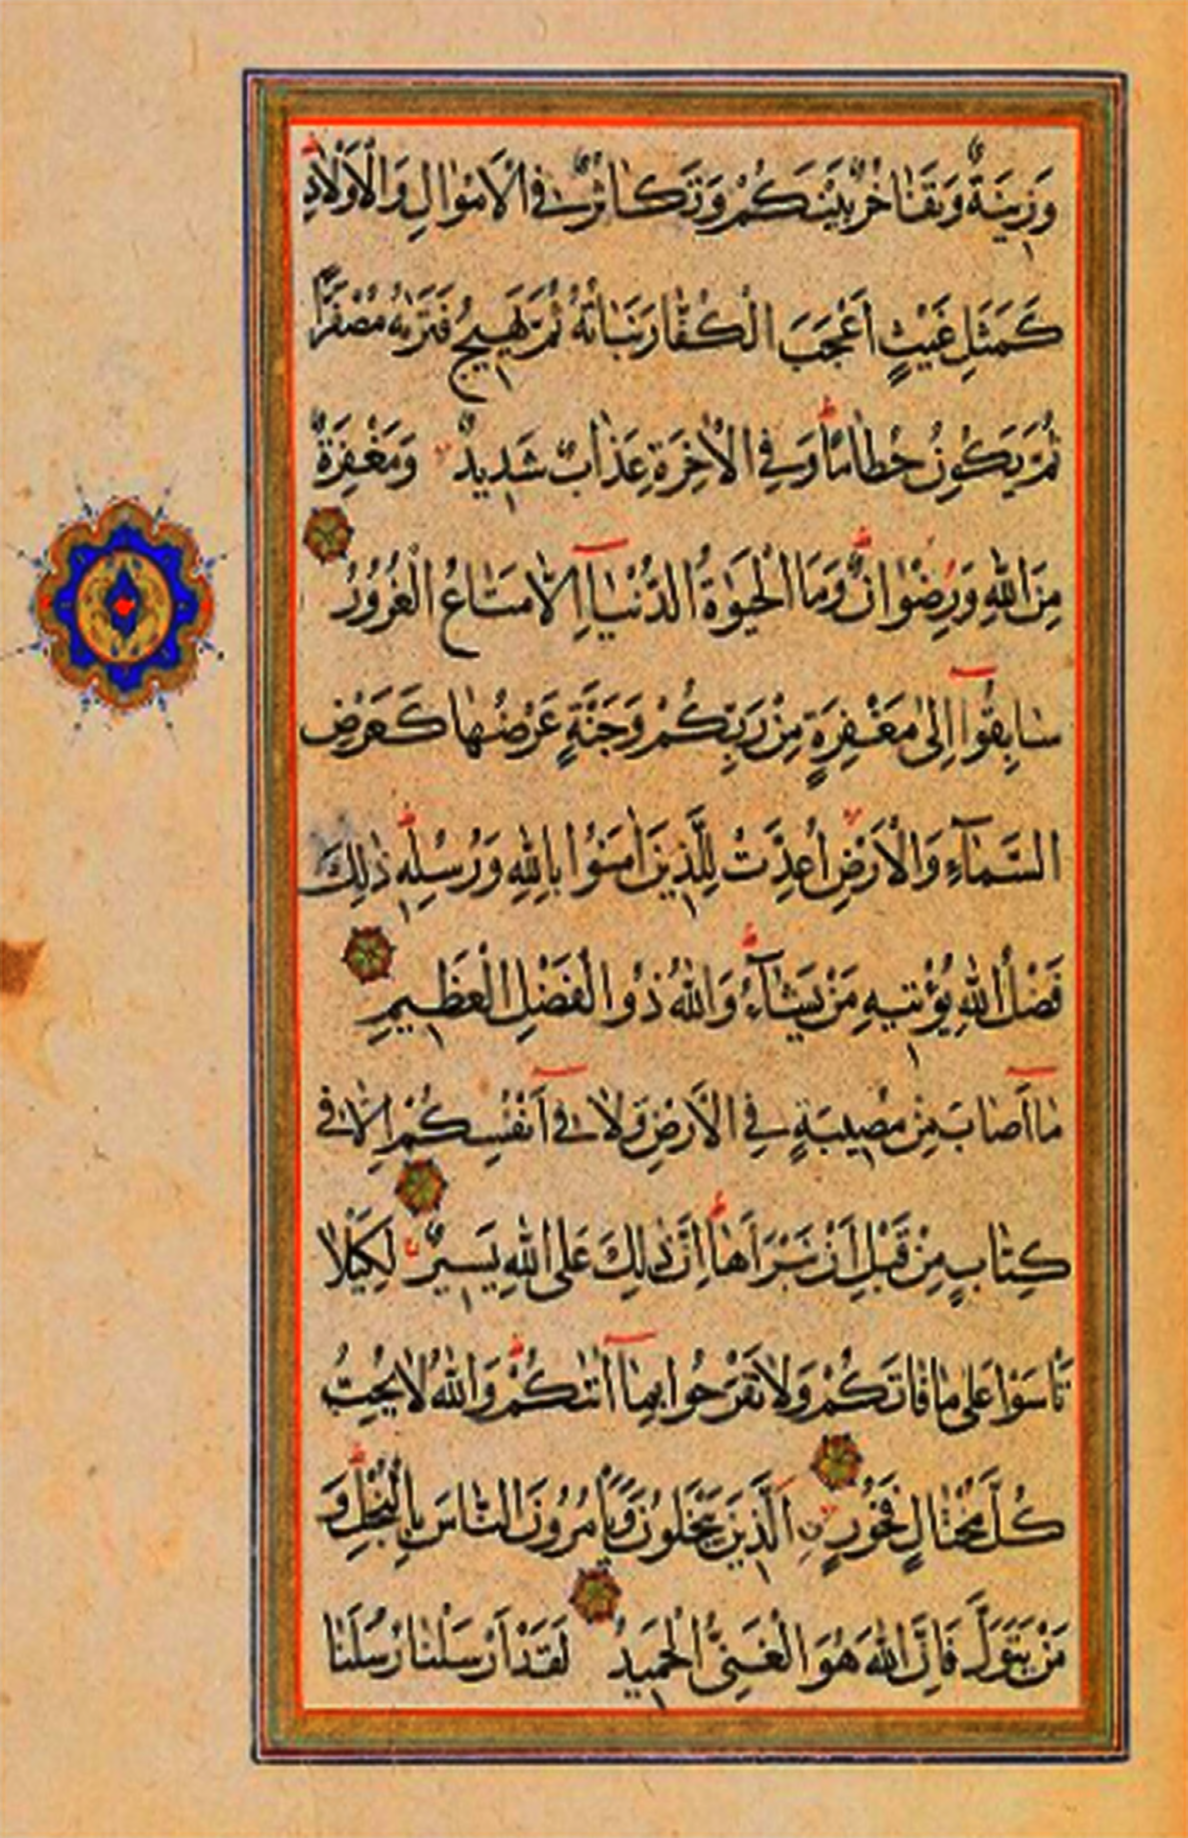 وَزِينَةٌ وَتَفَاخُرٌ بَيْنَكُمْ وَتَكَاثُرٌ فِي الْاَمْوَالِ وَالْاَوْلَادِ
كَمَثَلِ غَيْثٍ اَعْجَبَ الْكُفَّارَ نَبَاتُهُ ثُمَّ يَهِيجُ فَتَرٰيهُ مُصْفَرًّا
ثُمَّ يَكُونُ حُطَامًا وَفِي الْاٰخِرَةِ عَذَابٌ شَدِيدٌ وَمَغْفِرَةٌ
مِنَ اللّٰهِ وَرِضْوَانٌ وَمَا الْحَيٰوةُ الدُّنْيَا اِلَّا مَتَاعُ الْغُرُورِ
سَابِقُوا اِلٰى مَغْفِرَةٍ مِنْ رَبِّكُمْ وَجَنَّةٍ عَرْضُهَا كَعَرْضِ
السَّمَآءِ وَالْاَرْضِ اُعِدَّتْ لِلَّذِينَ اٰمَنُوا بِاللّٰهِ وَرُسُلِهِ ذٰلِكَ
فَضْلُ اللّٰهِ يُؤْتِيهِ مَنْ يَشَآءُ وَاللّٰهُ ذُو الْفَضْلِ الْعَظِيمِ
مَا اَصَابَ مِنْ مُصِيبَةٍ فِي الْاَرْضِ وَلَا فِي اَنْفُسِكُمْ اِلَّا فِي
كِتَابٍ مِنْ قَبْلِ اَنْ نَبْرَاَهَا اِنَّ ذٰلِكَ عَلَى اللّٰهِ يَسِيرٌ لِكَيْلَا
تَاْسَوْا عَلٰى مَا فَاتَكُمْ وَلَا تَفْرَحُوا بِمَا اٰتٰيكُمْ وَاللّٰهُ لَا يُحِبُّ
كُلَّ مُخْتَالٍ فَخُورٍ اَلَّذِينَ يَبْخَلُونَ وَيَاْمُرُونَ النَّاسَ بِالْبُخْلِ وَ
مَنْ يَتَوَلَّ فَاِنَّ اللّٰهَ هُوَ الْغَنِيُّ الْحَمِيدُ لَقَدْ اَرْسَلْنَا رُسُلَنَا